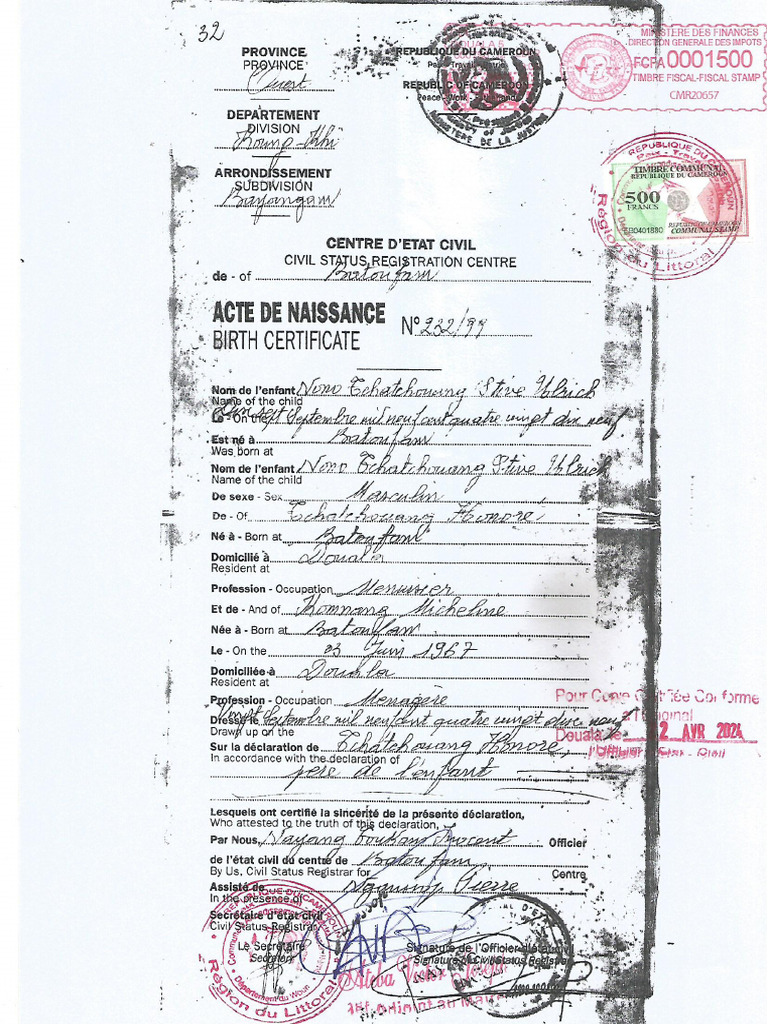 32
PROVINCE
PROVINCE
Ouest
DEPARTEMENT
DIVISION
Koung-Khi
ARRONDISSEMENT
SUBDIVISION
Bayangam
REPUBLIQUE DU CAMEROUN
REPUBLIC OF CAMEROON
Peace - Work -
MINISTERE DE LA JUSTICE
MINISTERE DES FINANCES
DIRECTION GENERALE DES IMPOTS
FCFA 0001500
TIMBRE FISCAL-FISCAL STAMP
CMR20657
REPUBLIQUE DU CAMEROUN
TIMBRE COMMUNAL
REPUBLIQUE DU CAMEROUN
500
FRANCS
COMMUNAL STAMP
Région du Littoral
CENTRE D'ETAT CIVIL
CIVIL STATUS REGISTRATION CENTRE
de - of Batoufam
ACTE DE NAISSANCE
BIRTH CERTIFICATE
N° 232/99
Nom de l'enfant Nono Tchatchouang Stive Ulrich
Name of the child
Le - On the Dix sept Septembre mil neuf cent quatre vingt dix neuf
Est né à Batoufam
Was born at
Nom de l'enfant Nono Tchatchouang Stive Ulrich
Name of the child
De sexe - Sex Masculin
De - Of Tchatchouang Honoré
Né à - Born at Batoufam
Domicilié à Douala
Resident at
Profession - Occupation Menuisier
Et de - And of Komnang Micheline
Née à - Born at Batoufam
Le - On the 23 Juin 1967
Domiciliée à Douala
Resident at
Profession - Occupation Menagère
Dressé le Vingt Septembre mil neuf cent quatre vingt dix neuf
Drawn up on the
Sur la déclaration de Tchatchouang Honoré,
In accordance with the declaration of
père de l'enfant
Pour Copie Certifiée Conforme
à l'original
Douala le 2 AVR 2024
Lesquels ont certifié la sincérité de la présente déclaration,
Who attested to the truth of this declaration,
Par Nous, Officier
de l'état civil du centre de Batoufam
By Us, Civil Status Registrar for Centre
Assisté de Pierre
In the presence of
Secrétaire d'état civil
Civil Status Registrar
Le Secrétaire
Secretary
Signature de l'Officier d'état civil
Signature of Civil Status Registrar
REPUBLIQUE DU CAMEROUN
Région du Littoral
Département du Wouri
1er Adjoint au Maire